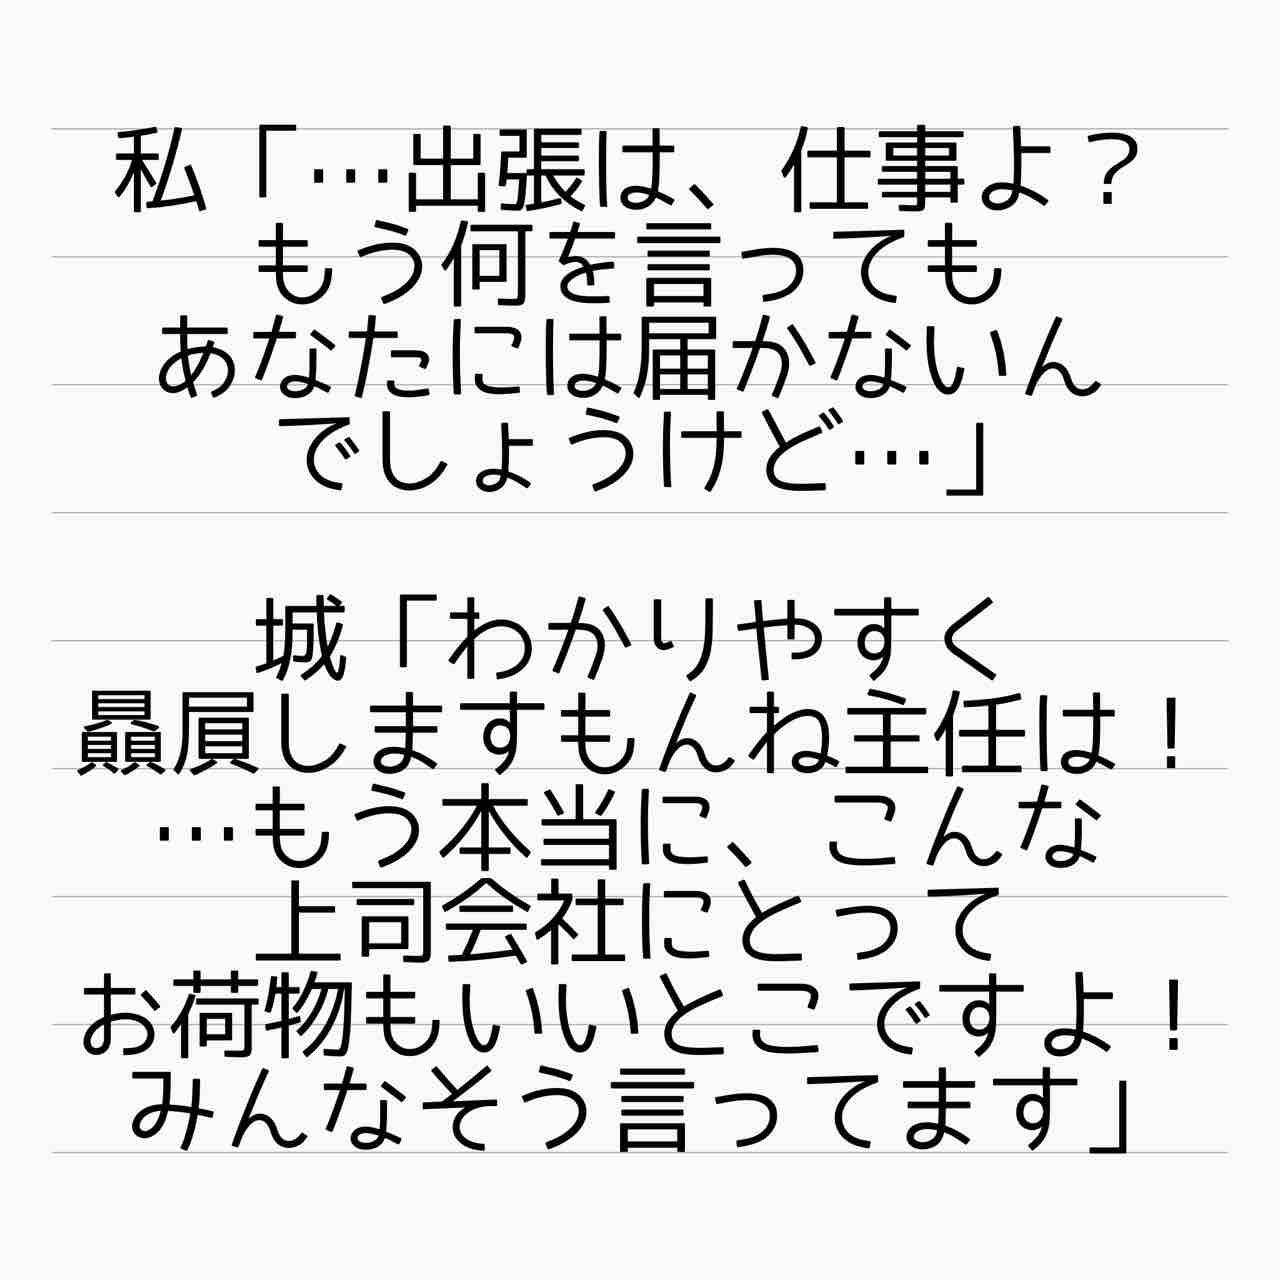 私「…出張は、仕事よ？
もう何を言っても
あなたには届かないん
でしょうけど…」
城「わかりやすく
贔屓しますもんね主任は！
…もう本当に、こんな
上司会社にとって
お荷物もいいとこですよ！
みんなそう言ってます」